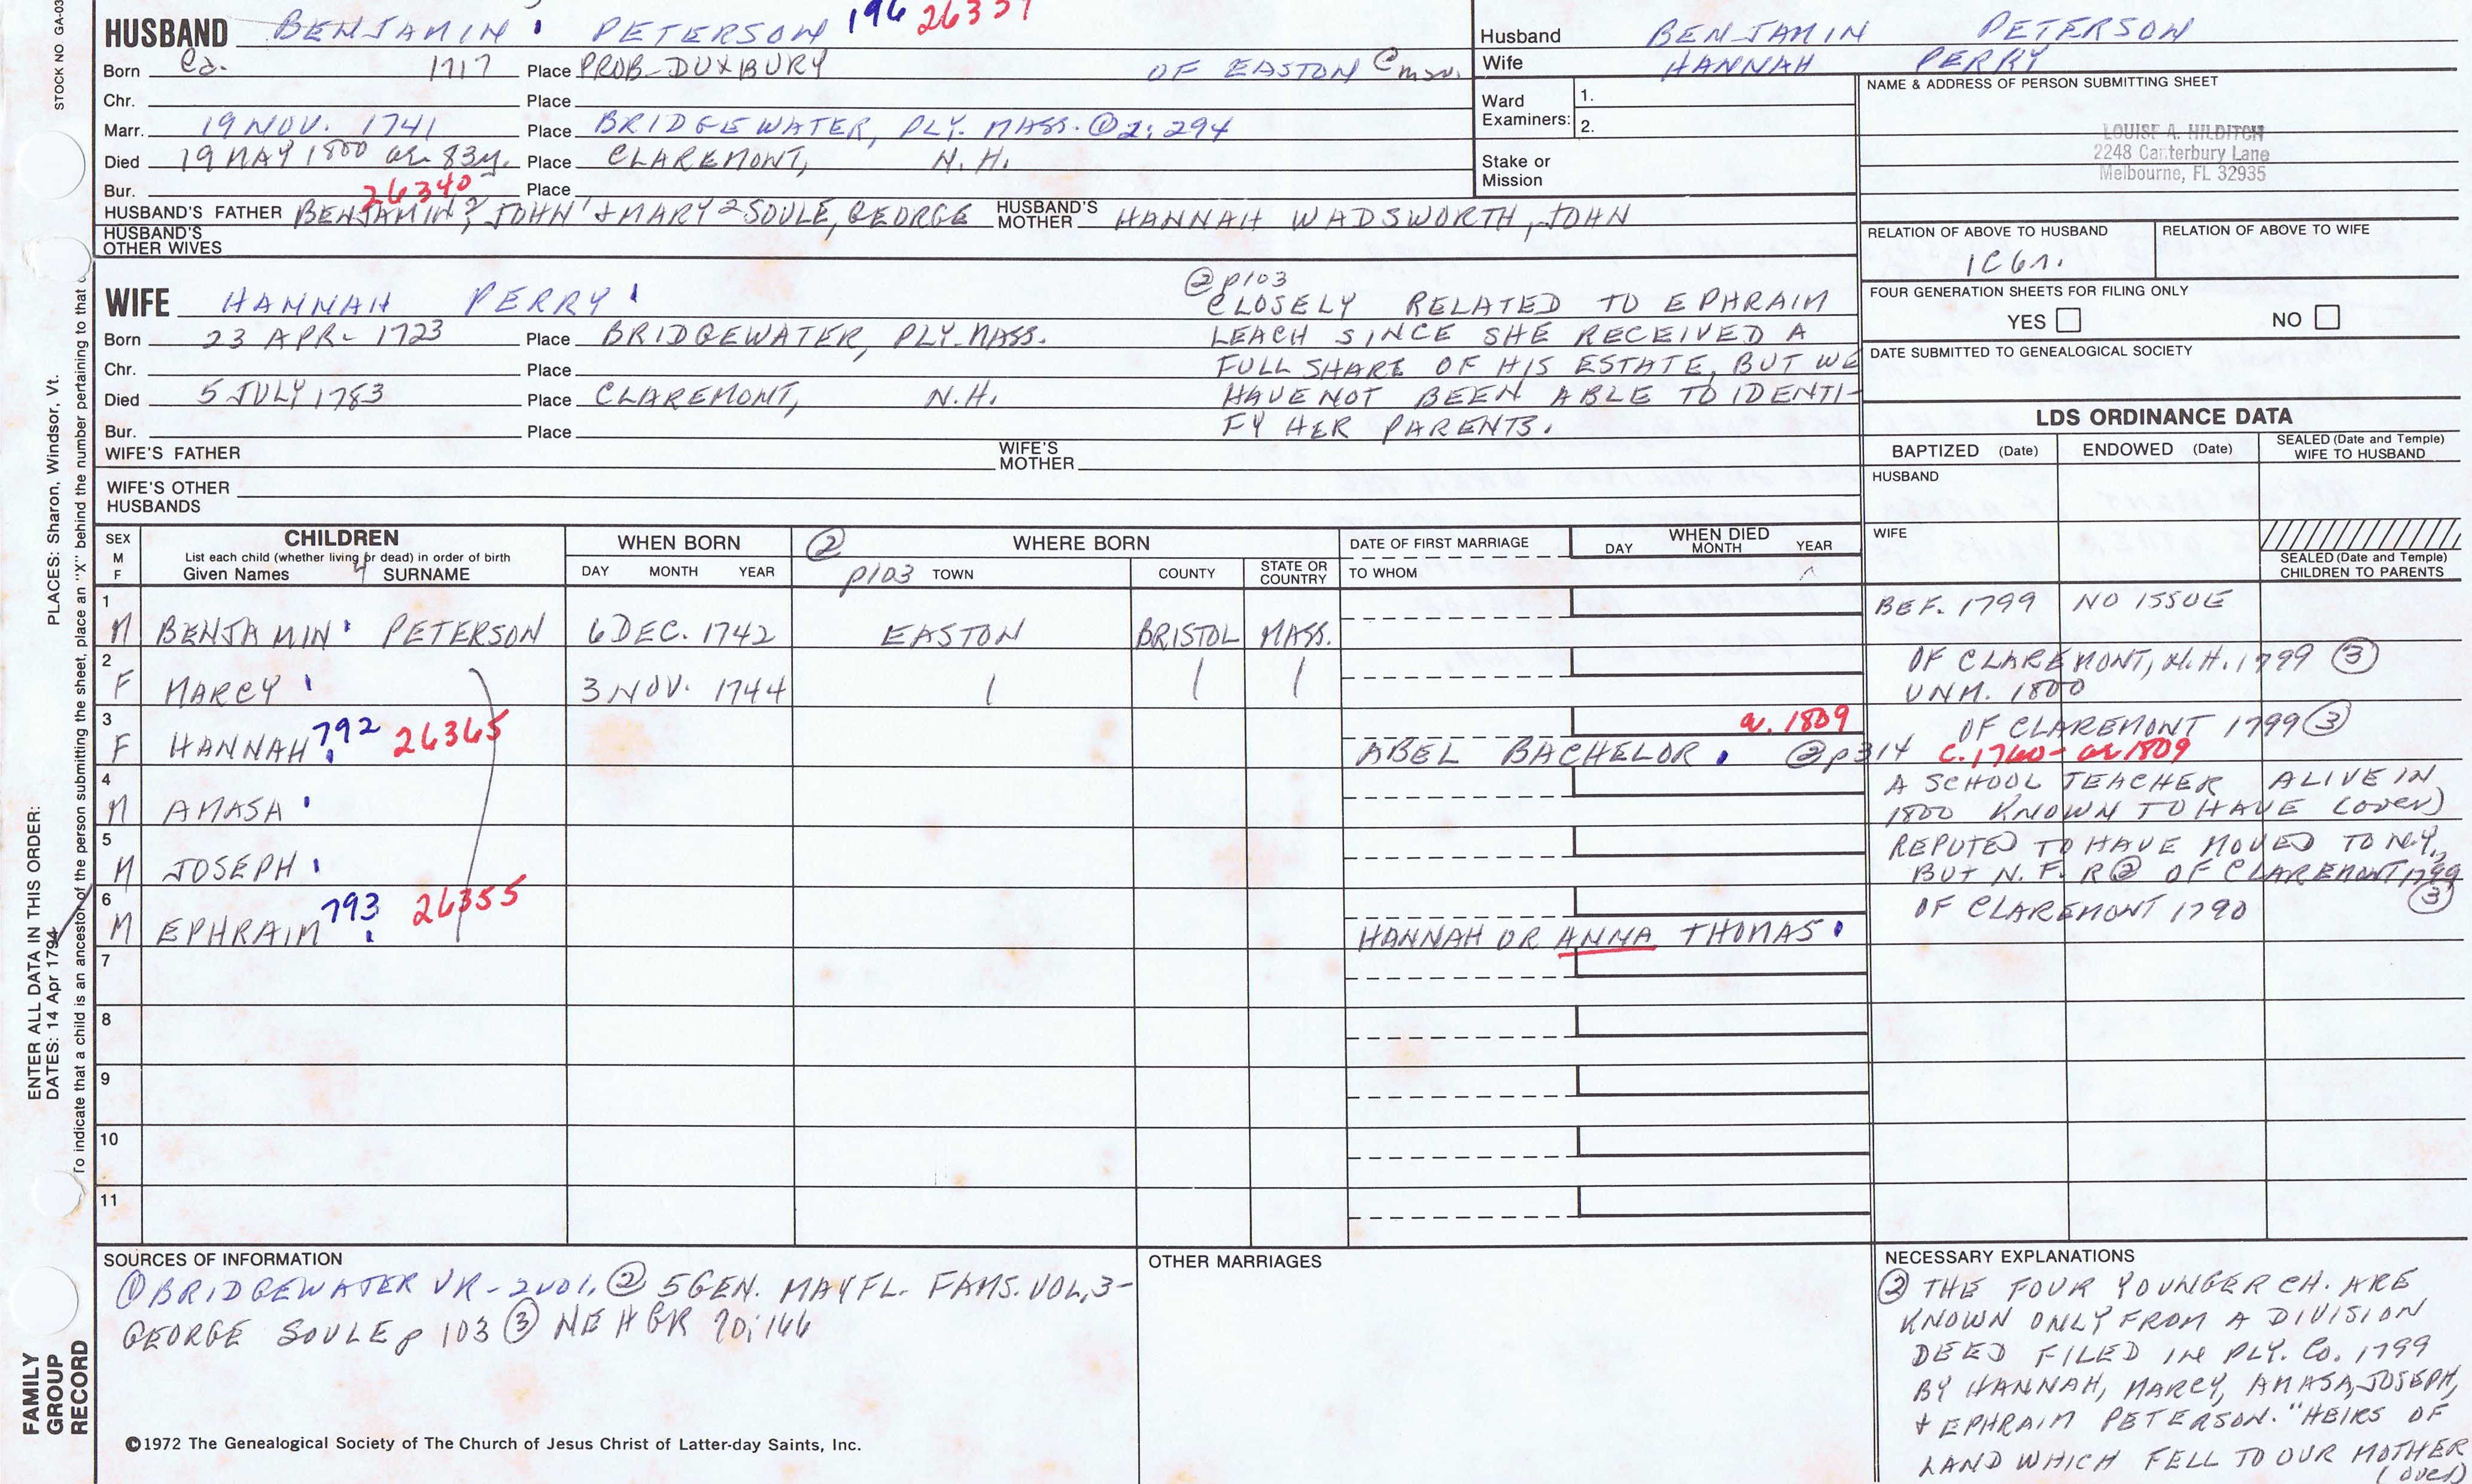 STOCK NO GA-03
HUSBAND BENJAMIN PETERSON 196 26337
Born Ca. 1717 Place PROB-DUXBURY OF EASTON
Chr. Place
Marr. 19 NOV. 1741 Place BRIDGEWATER, PLY. MASS. ① 2:294
Died 19 MAY 1800 ae. 83y. Place CLAREMONT, N.H.
Bur. Place
26340
HUSBAND'S FATHER BENJAMIN², JOHN¹ + MARY² SOULE, GEORGE HUSBAND'S MOTHER HANNAH WADSWORTH, JOHN
HUSBAND'S OTHER WIVES
Husband BENJAMIN PETERSON
Wife HANNAH PERRY
Ward Examiners: 1.
2.
Stake or Mission
NAME & ADDRESS OF PERSON SUBMITTING SHEET
LOUISE A. HILDITCH
2248 Canterbury Lane
Melbourne, FL 32935
RELATION OF ABOVE TO HUSBAND RELATION OF ABOVE TO WIFE
1C6r.
FOUR GENERATION SHEETS FOR FILING ONLY
YES NO
DATE SUBMITTED TO GENEALOGICAL SOCIETY
WIFE HANNAH PERRY
Born 23 APR- 1723 Place BRIDGEWATER, PLY-MASS.
Chr. Place
Died 5 JULY 1783 Place CLAREMONT, N.H.
Bur. Place
WIFE'S FATHER WIFE'S MOTHER
WIFE'S OTHER HUSBANDS
② p103
CLOSELY RELATED TO EPHRAIM
LEACH SINCE SHE RECEIVED A
FULL SHARE OF HIS ESTATE, BUT WE
HAVE NOT BEEN ABLE TO IDENTI-
FY HER PARENTS.
LDS ORDINANCE DATA
BAPTIZED (Date) ENDOWED (Date) SEALED (Date and Temple) WIFE TO HUSBAND
HUSBAND
WIFE
SEALED (Date and Temple) CHILDREN TO PARENTS
SEX M F CHILDREN WHEN BORN ② WHERE BORN DATE OF FIRST MARRIAGE WHEN DIED
List each child (whether living or dead) in order of birth
Given Names SURNAME DAY MONTH YEAR p103 TOWN COUNTY STATE OR COUNTRY TO WHOM DAY MONTH YEAR
1 M BENJAMIN PETERSON 6 DEC. 1742 EASTON BRISTOL MASS. BEF. 1799 NO ISSUE
2 F MARCY 3 NOV. 1744 OF CLAREMONT, N.H. 1799 ③
UNM. 1800
3 F HANNAH 792 26365 a. 1809 OF CLAREMONT 1799 ③
ABEL BACHELOR ② p314 C. 1760- ae 1809
4 M AMASA A SCHOOL TEACHER ALIVE IN
1800 KNOWN TO HAVE (over)
5 M JOSEPH REPUTED TO HAVE MOVED TO N.Y.,
BUT N. F. R ② OF CLAREMONT 1799
③
6 M EPHRAIM 793 26355 OF CLAREMONT 1790
HANNAH OR ANNA THOMAS
7
8
9
10
11
SOURCES OF INFORMATION
① BRIDGEWATER VR - 2VOL. ② 5GEN. MAYFL. FAMS. VOL, 3-
GEORGE SOULE p 103 ③ NEHGR 70:166
OTHER MARRIAGES
NECESSARY EXPLANATIONS
② THE FOUR YOUNGER CH. ARE
KNOWN ONLY FROM A DIVISION
DEED FILED IN PLY. CO. 1799
BY HANNAH, MARCY, AMASA, JOSEPH,
+ EPHRAIM PETERSON. "HEIRS OF
LAND WHICH FELL TO OUR MOTHER
(over)
©1972 The Genealogical Society of The Church of Jesus Christ of Latter-day Saints, Inc.
PLACES: Sharon, Windsor, Vt.
To indicate that a child is an ancestor of the person submitting the sheet, place an "X" behind the number pertaining to that
ENTER ALL DATA IN THIS ORDER:
DATES: 14 Apr 1794
FAMILY
GROUP
RECORD